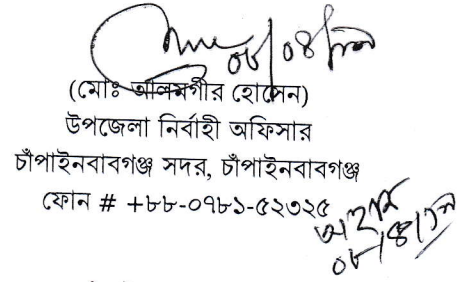 ০৮/০৪/১৮
(মোঃ আলমগীর হোসেন)
উপজেলা নির্বাহী অফিসার
চাঁপাইনবাবগঞ্জ সদর, চাঁপাইনবাবগঞ্জ
ফোন # +৮৮-০৭৮১-৫২৩২৫
০৮/৪/১৮